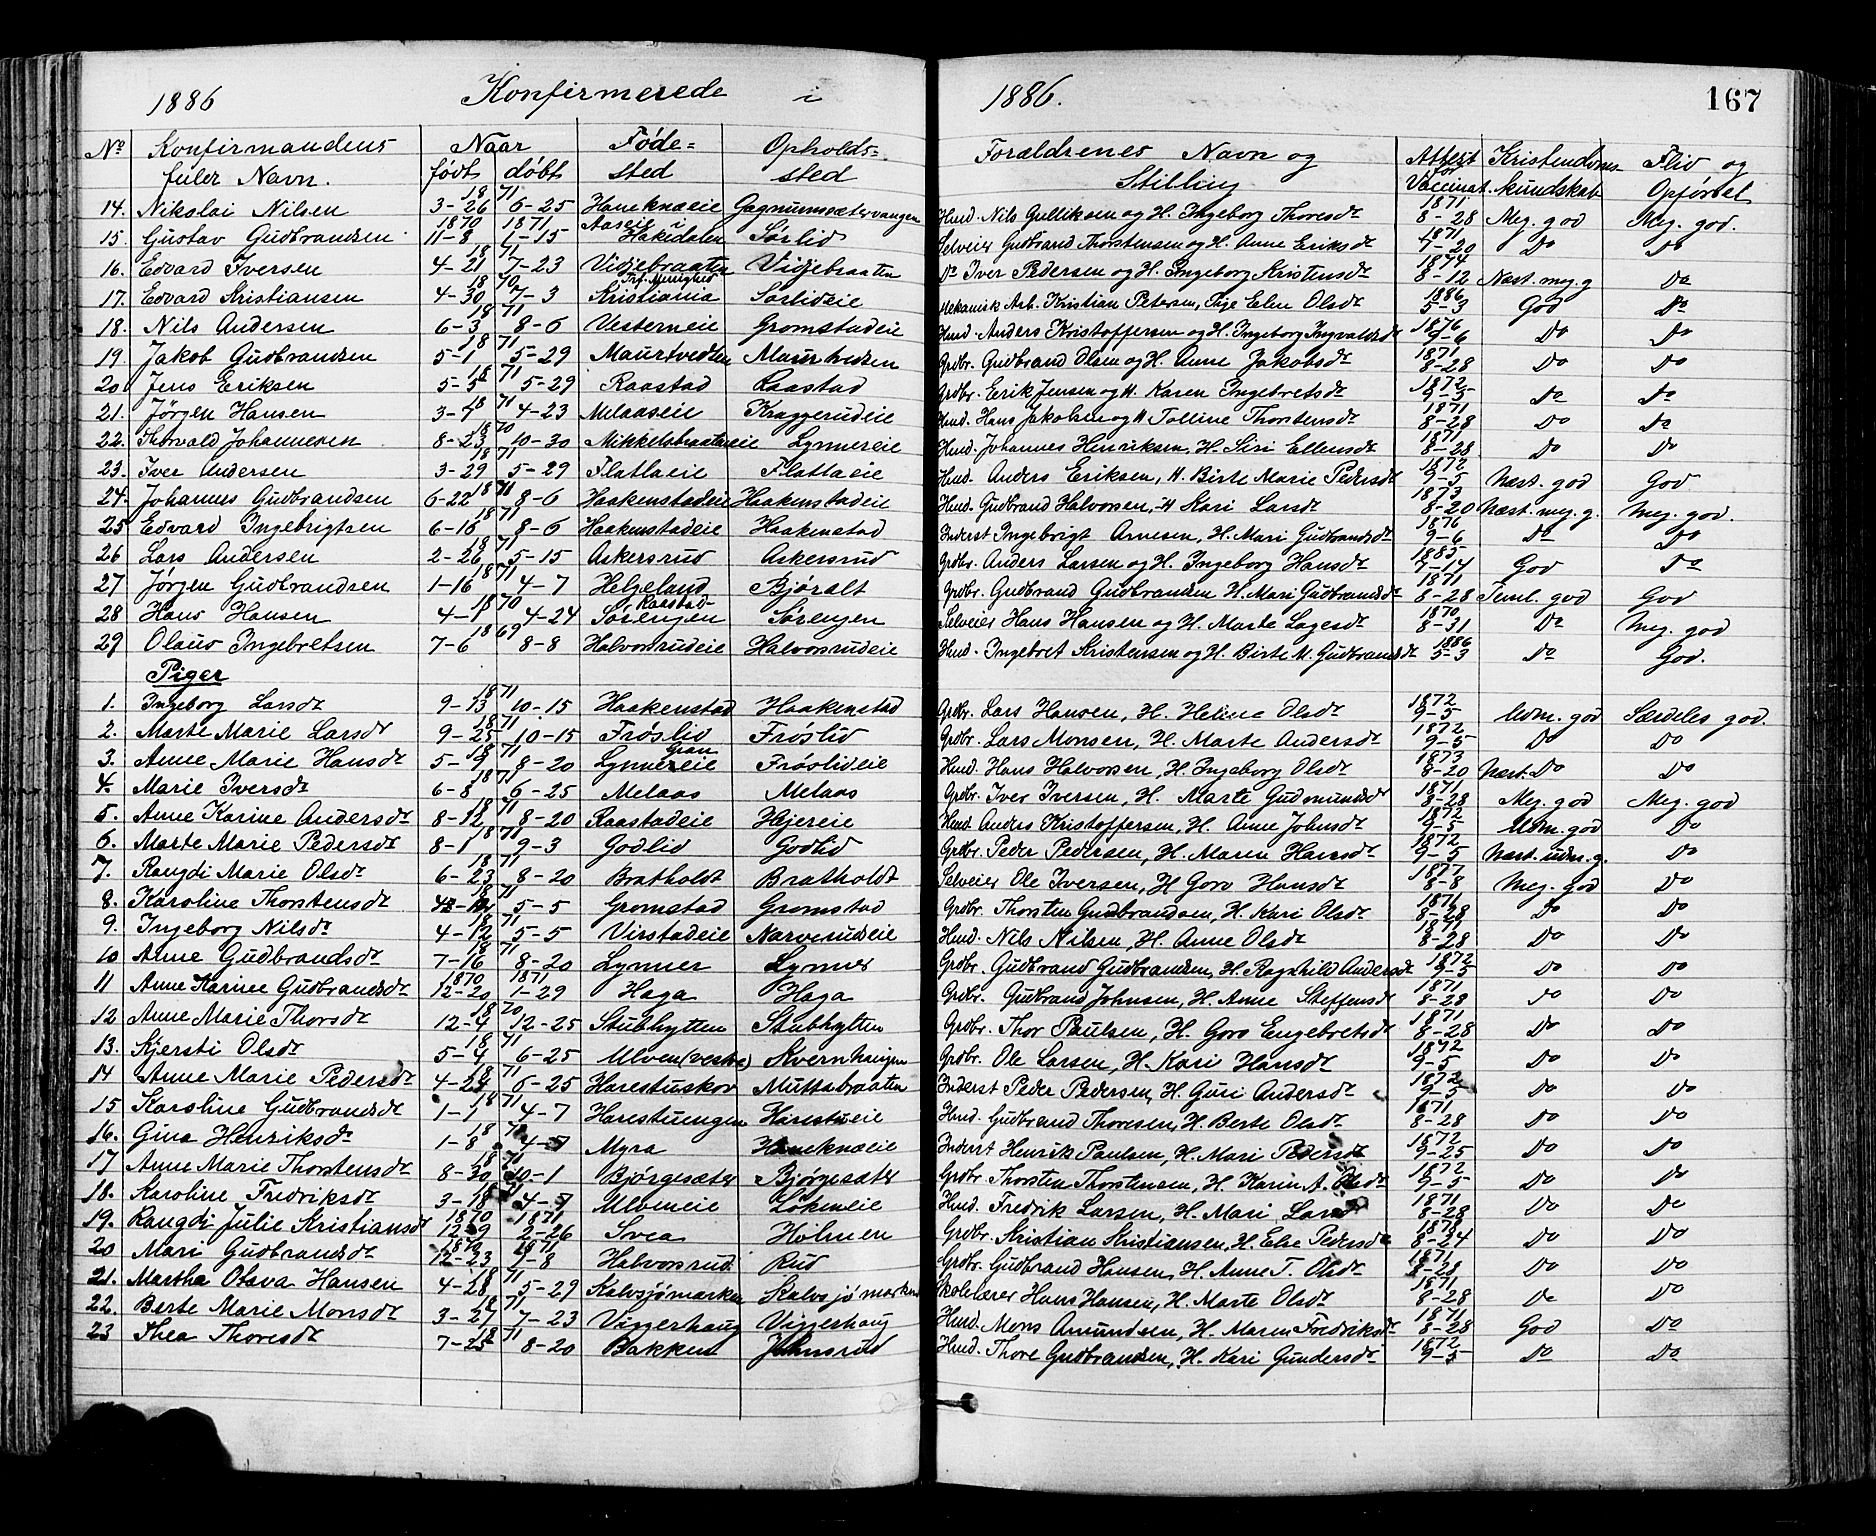 1886 Konfirmerede i 1886. 167
No Konfirmandens Naar Føde= Opholds= Forældrenes Navn og Attest Kristendoms Flid og
fulde Navn. født døbt sted sted Stilling for Vaccinat. kundskab Opførsel
14. Nikolai Nilsen 3-26 1871 6-25 Haneknæeie Gagnumsætervangen Husd. Nils Gulliksen og H. Ingeborg Thoresdr 1871 8-28 Meg. god Meg. god.
15. Gustav Gudbrandsen 1870 11-8 1871 1-15 Aaseie i Hakedalen Sørlid Selveier Gudbrand Thorstensen og H. Anne Eriksdr 1871 9-20 Do Do
16. Edvard Iversen 4-21 1871 7-23 Vidjebraaten Vidjebraaten Do Iver Pedersen og H. Ingeborg Kristensdr 1874 8-12 Næst. meg. g Do
17. Edvard Kristiansen 4-30 1870 7-3 Trf. Menighed Kristiania Sørlideie Mekanisk Arb. Kristian Petersen, Pige Elen Olsdr 1886 5-3 God Do
18. Nils Andersen 6-3 1871 8-6 Vesterneie Gromstadeie Husd. Anders Kristoffersen og H. Ingeborg Ingvaldsdr 1876 9-6 Do Do
19. Jakob Gudbrandsen 5-1 1871 5-29 Maurtvedten Maurtvedten Grdbr. Gudbrand Olsen og H. Anne Jakobsdr 1871 8-28 Do Do
20. Jens Eriksen 5-5 1871 5-29 Raastad Raastad Grdbr. Erik Jensen og H. Karen Ingebretsdr 1872 9-5 Do Do
21. Jørgen Hansen 3-7 1871 4-23 Melaaseie Kraggerudeie Husd. Hans Jakobsen og H Tolline Thorstensdr 1871 8-28 Do Do
22. Thorvald Johannesen 8-23 1870 10-30 Mikkelsbraateneie Lynnereie Husd. Johannes Henriksen, H. Siri Ellensdr 1871 8-28 Do Do
23. Iver Andersen 3-29 1871 5-29 Flatlaeie Flatlaeie Husd. Anders Eriksen, H. Birte Marie Pedersdr 1872 9-5 Næst. god God
24. Johannes Gudbrandsen 6-22 1871 8-6 Haakenstadeie Haakenstadeie Husd. Gudbrand Halvorsen, H Kari Larsdr 1873 8-20 Næst. meg. g. Meg. god.
25 Edvard Ingebrigtsen 6-16 1871 8-6 Haakenstadeie Haakenstad Inderst Ingebrigt Arnesen, H. Mari Gudbrandsdr 1876 9-6 Do Do
26 Lars Andersen 2-26 1871 5-15 Askersrud Askersrud Grdbr. Anders Larsen og H. Ingeborg Hansdr 1885 7-14 God Do
27 Jørgen Gudbrandsen 1-16 1871 4-7 Helgeland Bjøralt Grdbr. Gudbrand Gudbrandsen H. Mari Gudbrandsdr 1871 8-28 Teml. god God
28 Hans Hansen 4-1 1870 4-24 Raastad- Sørengen Sørengen Selveier Hans Hansen og H. Marte Lagesdr 1870 8-31 Do Meg. god
29 Olaus Ingebretsen 7-6 1869 8-8 Halvorsrudeie Halvorsrudeie Husd. Ingebret Kristensen og H. Birte M. Gudbrandsdr 1886 5-3 Do God.
Piger
1. Ingeborg Larsdr 9-13 1871 10-15 Haakenstad Haakenstad Grdbr. Lars Hansen, H. Helene Olsdr 1872 9-5 Udm. god Særdeles god.
2. Marte Marie Larsdr 9-25 1871 10-15 Frøslid Frøslid Grdbr. Lars Monsen, H. Marte Andersdr 1872 9-5 Do Do
3. Anne Marie Hansdr 5-9 1871 8-20 Gran Lynnereie Frøslideie Husd. Hans Halvorsen, H. Ingeborg Olsdr 1873 8-20 Næst. Do Do
4. Marie Iversdr 6-8 1871 6-25 Melaas Melaas Grdbr. Iver Iversen, H. Marte Gudmundsdr 1871 8-28 Meg. god Meg. god
5. Anne Karine Andersdr 8-12 1871 8-20 Raastadeie Hejereie Husd. Anders Kristoffersen, H. Anne Johnsdr 1872 9-5 Udm. god Do
6. Marte Marie Pedersdr 8-1 1871 9-3 Godlid Godlid Grdbr. Peder Pedersen, H. Maren Hansdr 1872 9-5 Næst. udm. g. Do
7. Rangdi Marie Olsdr 6-23 1871 8-20 Bratholdt Bratholdt Selveier Ole Iversen, H Goro Hansdr 1877 8-8 Meg. god Do
8. Karoline Thorstensdr 1871 5-5 Gromstad Gromstad Grdbr. Thorsten Gudbrandsen, H. Kari Olsdr 1871 8-28 Do Do
9. Ingeborg Nilsdr 4-12 1871 5-5 Virstadeie Narverudeie Husd. Nils Nilsen, H. Anne Olsdr 1871 8-28 Do Do
10 Anne Gudbrandsdr 7-16 1871 8-20 Lynner Lynner Grdbr. Gudbrand Gudbrandsen, H. Ragnhild Andersdr 1872 9-5 Do Do
11 Anne Karine Gudbrandsdr 1870 12-20 1871 1-29 Haga Haga Grdbr. Gudbrand Johnsen, H. Anne Steffensdr 1871 8-28 Do Do
12 Anne Marie Thorsdr 12-4 1870 12-25 Stubhytten Stubhytten Grdbr. Thor Paulsen, H. Goro Engebretsdr 1871 8-28 Do Do
13. Kjersti Olsdr 5-4 1871 6-25 Ulven (vestre) Kvernhaugen Grdbr. Ole Larsen, H. Kari Hansdr 1872 9-5 Do Do
14 Anne Marie Pedersdr 4-24 1871 6-25 Harestuskov Muttabraaten Inderst Peder Pedersen, H. Guri Andersdr 1872 9-5 Do Do
15 Karoline Gudbrandsdr 1-1 1871 4-7 Harestuengen Harestueie Husd. Gudbrand Thoresen, H. Berte Olsdr 1871 8-28 Do Do
16. Gina Henriksdr 1-8 1871 Myra Haneknæeie Inderst Henrik Paulsen, H. Mari Pedersdr 1872 9-25 Do Do
17 Anne Marie Thorstensdr 8-30 1871 10-1 Bjørgesæter Bjørgesæter Grdbr. Thorsten Thorstensen, H. Karin A. Olsdr 1872 9-5 Do Do
18. Karoline Fredriksdr 3-18 Ulveneie Løkeneie Husd. Fredrik Larsen, H. Mari Larsdr 1871 8-28 Do Do
19. Rangdi Julie Kristiansdr 1870 12-9 1871 2-26 Svea Holmen Grdbr. Kristian Kristiansen, H. Else Pedersdr 1878 8-24 Do Do
20 Mari Gudbrandsdr 1870 12-23 1871 1-8 Halvorsrud Rud Grdbr. Gudbrand Hansen, H. Anne T. Olsdr 1871 8-28 Do Do
21. Martha Otava Hansen 4-28 1871 5-29 Kalvsjømarken Kalvsjømarken Skolelærer Hans Hansen, H. Marte Olsdr 1871 8-28 Do Do
22. Berte Marie Monsdr 3-27 1871 7-23 Viggerhaug Viggerhaug Husd. Mons Amundsen, H. Maren Fredriksdr 1871 8-28 God Do
23 Thea Thoresdr 7-25 1871 8-20 Bakken Johnsrud Husd. Thore Gudbrandsen, H. Kari Gundersdr 1872 9-5 Do Do